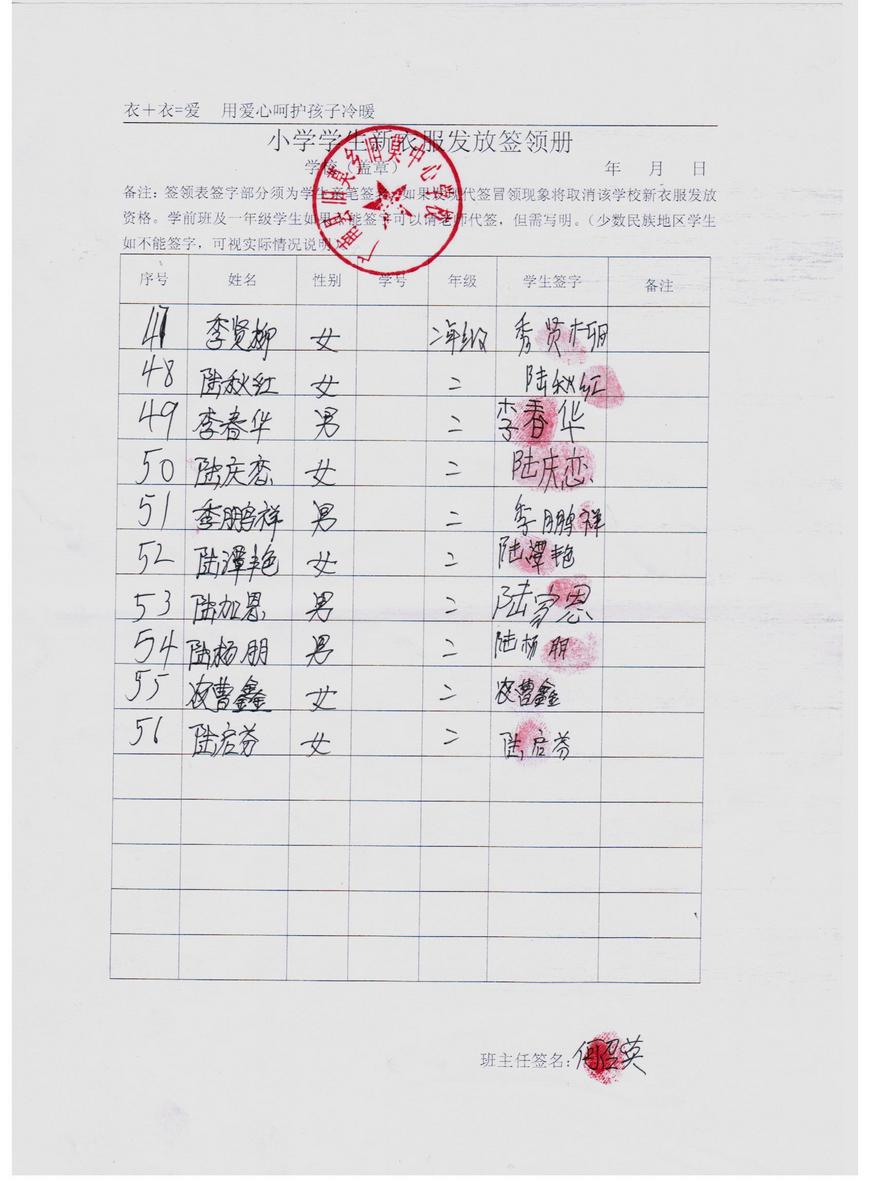 衣+衣=爱 用爱心呵护孩子冷暖
小学学生新衣服发放签领册
学校（盖章） 年 月 日
备注：签领表签字部分须为学生亲笔签，如果发现代签冒领现象将取消该学校新衣服发放
资格。学前班及一年级学生如果不能签字可以请老师代签，但需写明。（少数民族地区学生
如不能签字，可视实际情况说明
广南县旧莫乡旧莫中心学校
序号 姓名 性别 学号 年级 学生签字 备注
47 李贤柳 女 二年级 李贤柳
48 陆秋红 女 二 陆秋红
49 李春华 男 二 李春华
50 陆庆恋 女 二 陆庆恋
51 季鹏祥 男 二 季鹏祥
52 陆潭艳 女 二 陆潭艳
53 陆加恩 男 二 陆家恩
54 陆杨朋 男 二 陆杨朋
55 农曹鑫 女 二 农曹鑫
56 陆启芬 女 二 陆启芬
班主任签名：